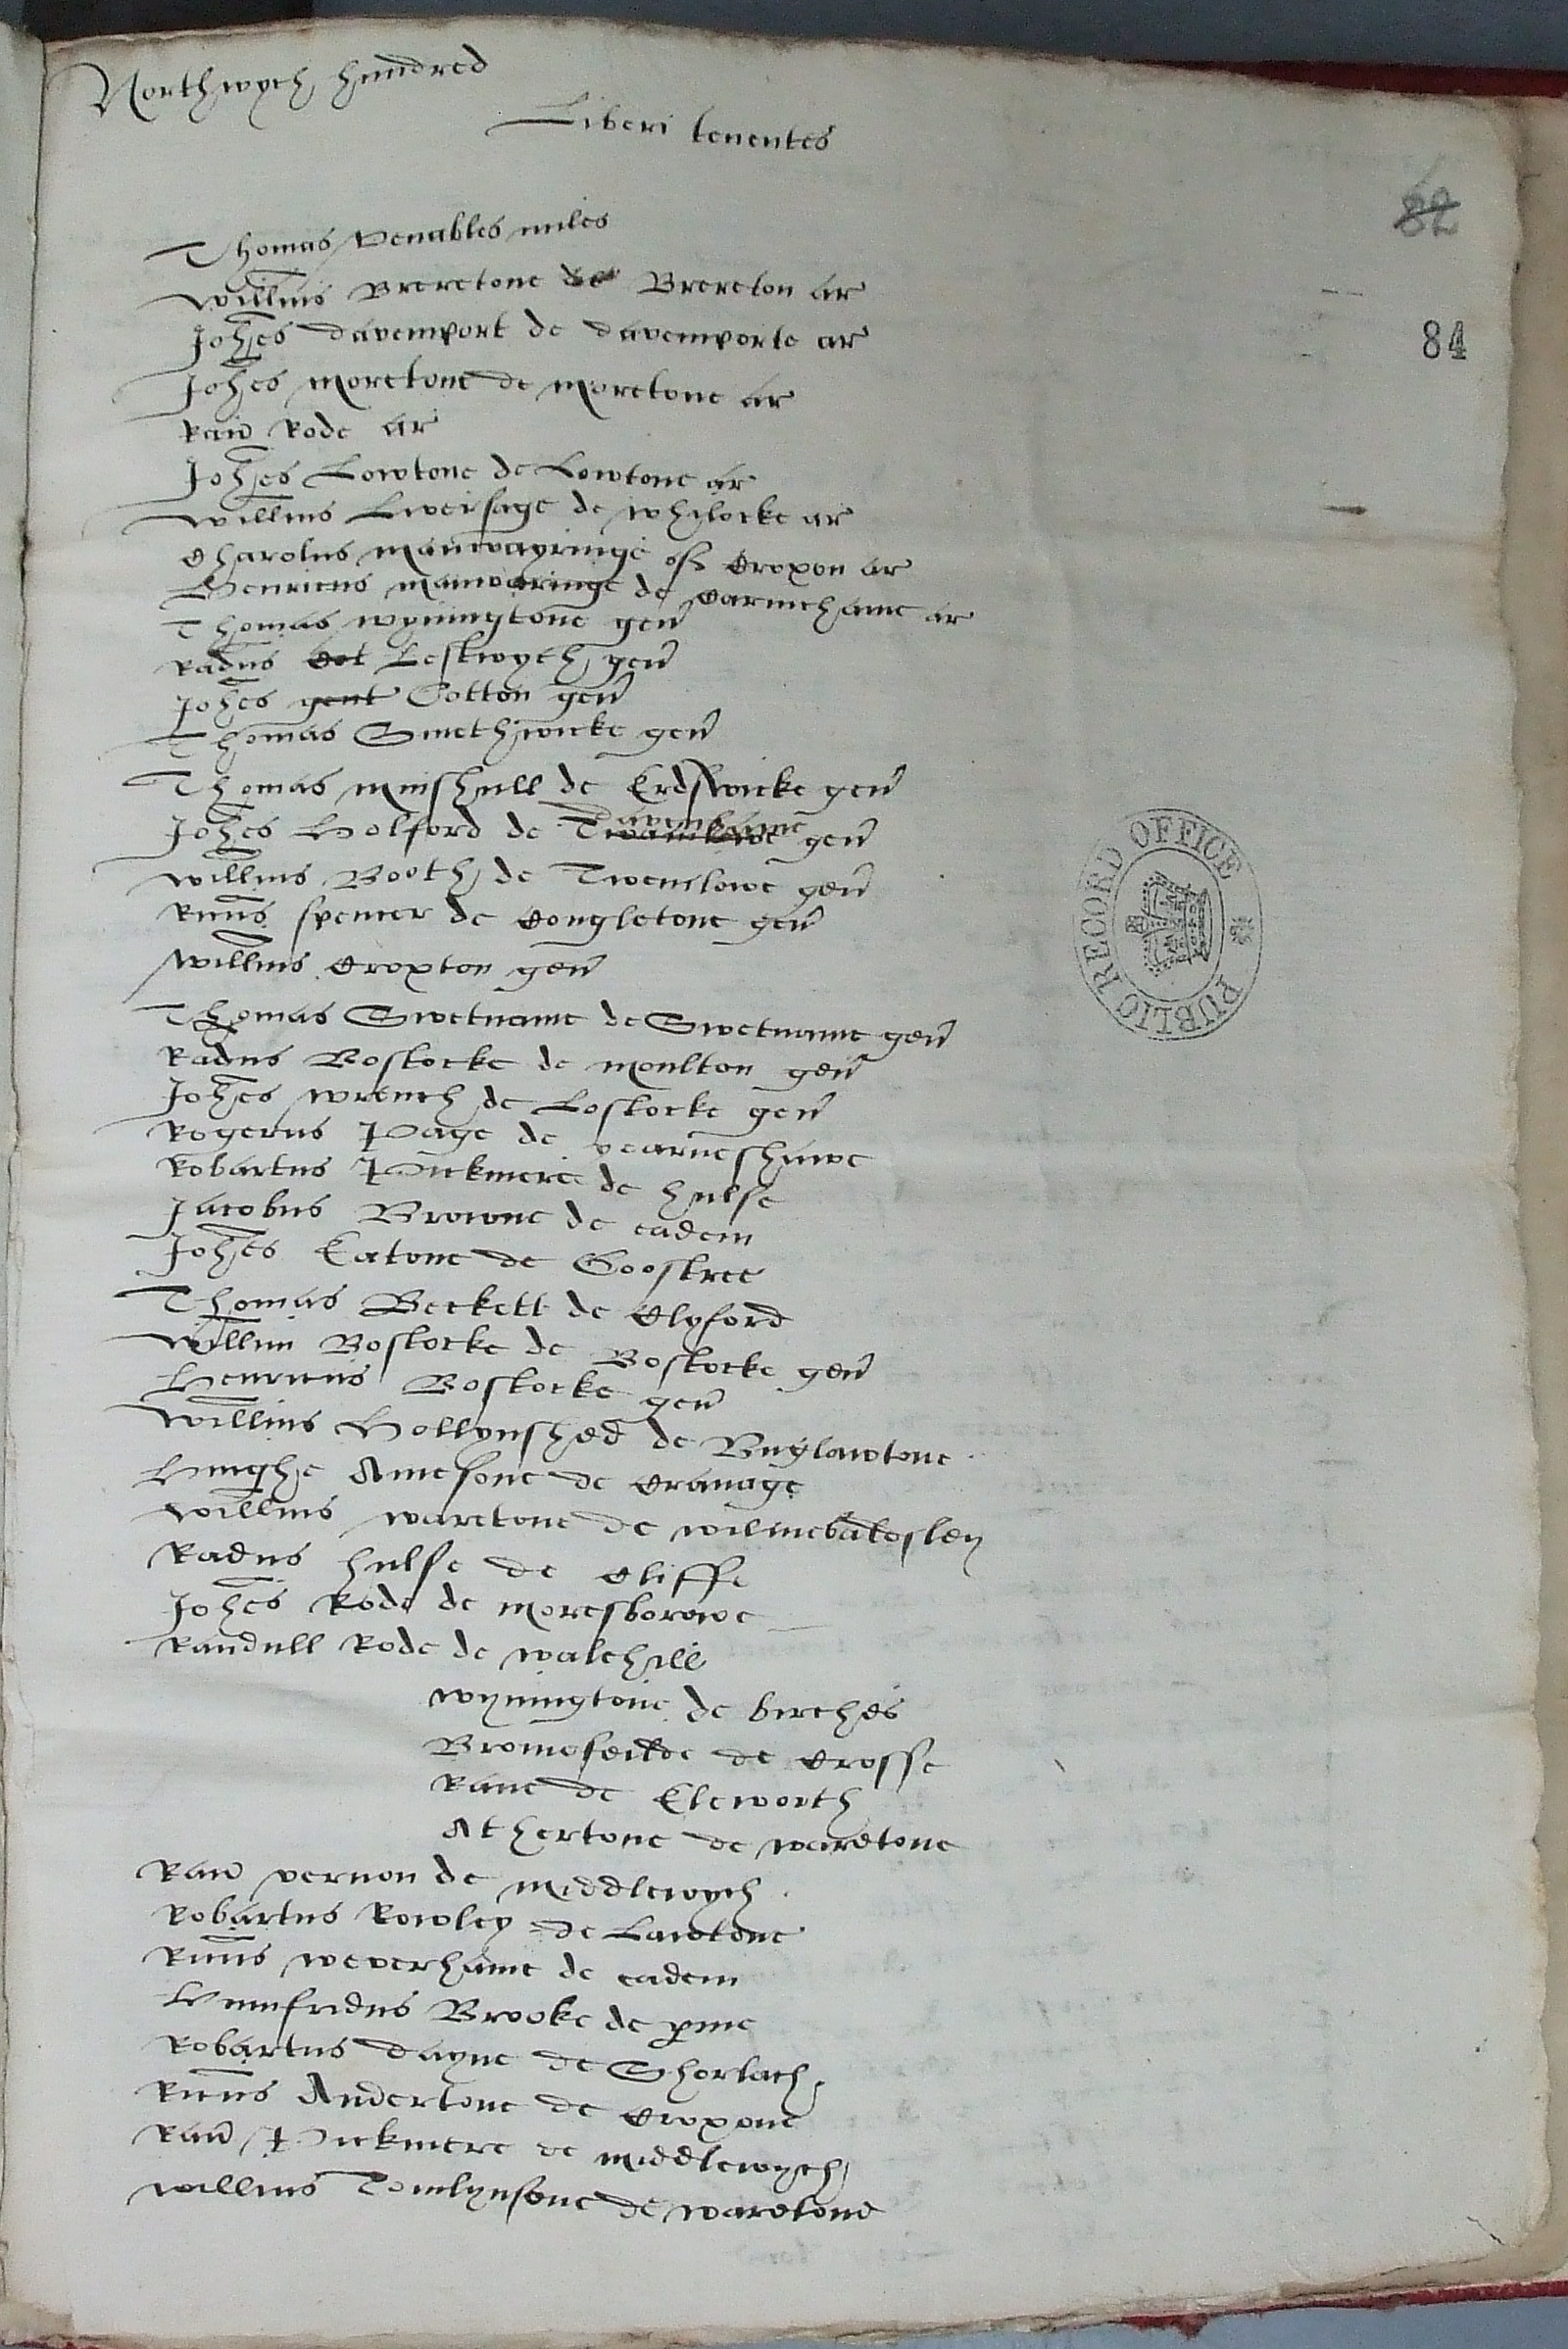 Northwych hundred
Liberi tenentes
82
84
Thomas Venables miles
Willms Breretone de Brereton ar
Johes Davenport de Davenporte ar
Johes Moretone de Moretone ar
Ran Rode ar
Johes Lowtone de Lowtone ar
Willms Liversage de Whelocke ar
Charolus Manwayringe of Croxon ar
Henricus Manwaringe de Carincham ar
Thomas Wynningtone gen
Radus Cot Leftwych gen
Johes gent Cotton gen
Thomas Smethwicke gen
Thomas Minshull de Erdswicke gen
Davenhame
Johes Holford de gen
Willms Booth de Twemlowe gen
Ricus Spencer de Congletone gen
Willms Croxton gen
Thomas Swetname de Swetname gen
Radus Bostocke de Moulton gen
Johes Wrench de Lostocke gen
Rogerus Page de Yearneshawe
Robartus Pickmere de Hulse
Jacobus Browne de eadem
Johes Eatone de Goostree
Thomas Beckett de Clyford
Willim Bostocke de Bostocke gen
Henricus Bostocke gen
Willms Hollynshed de Buglawtone
Hughe Amesone de Cranage
Willms Waretone de
Radus Hulse de Cliffe
Johes Rode de Moresborowe
Randull Rode de Walehill
Wynningtone de Birches
Bromefeilde de Crosse
Rane de Eleworth
Athertone de Waretone
Ran Vernon de Middlewych
Robartus Rowley de Lawtone
Ricus Weverhame de eadem
Humfridus Brooke de
Robartus Dayne de Shorlach
Ricus Andertone de Croxone
Ran Pickmere de Middlewych
Willms Tomlynsone de Waretone
PUBLIC RECORD OFFICE